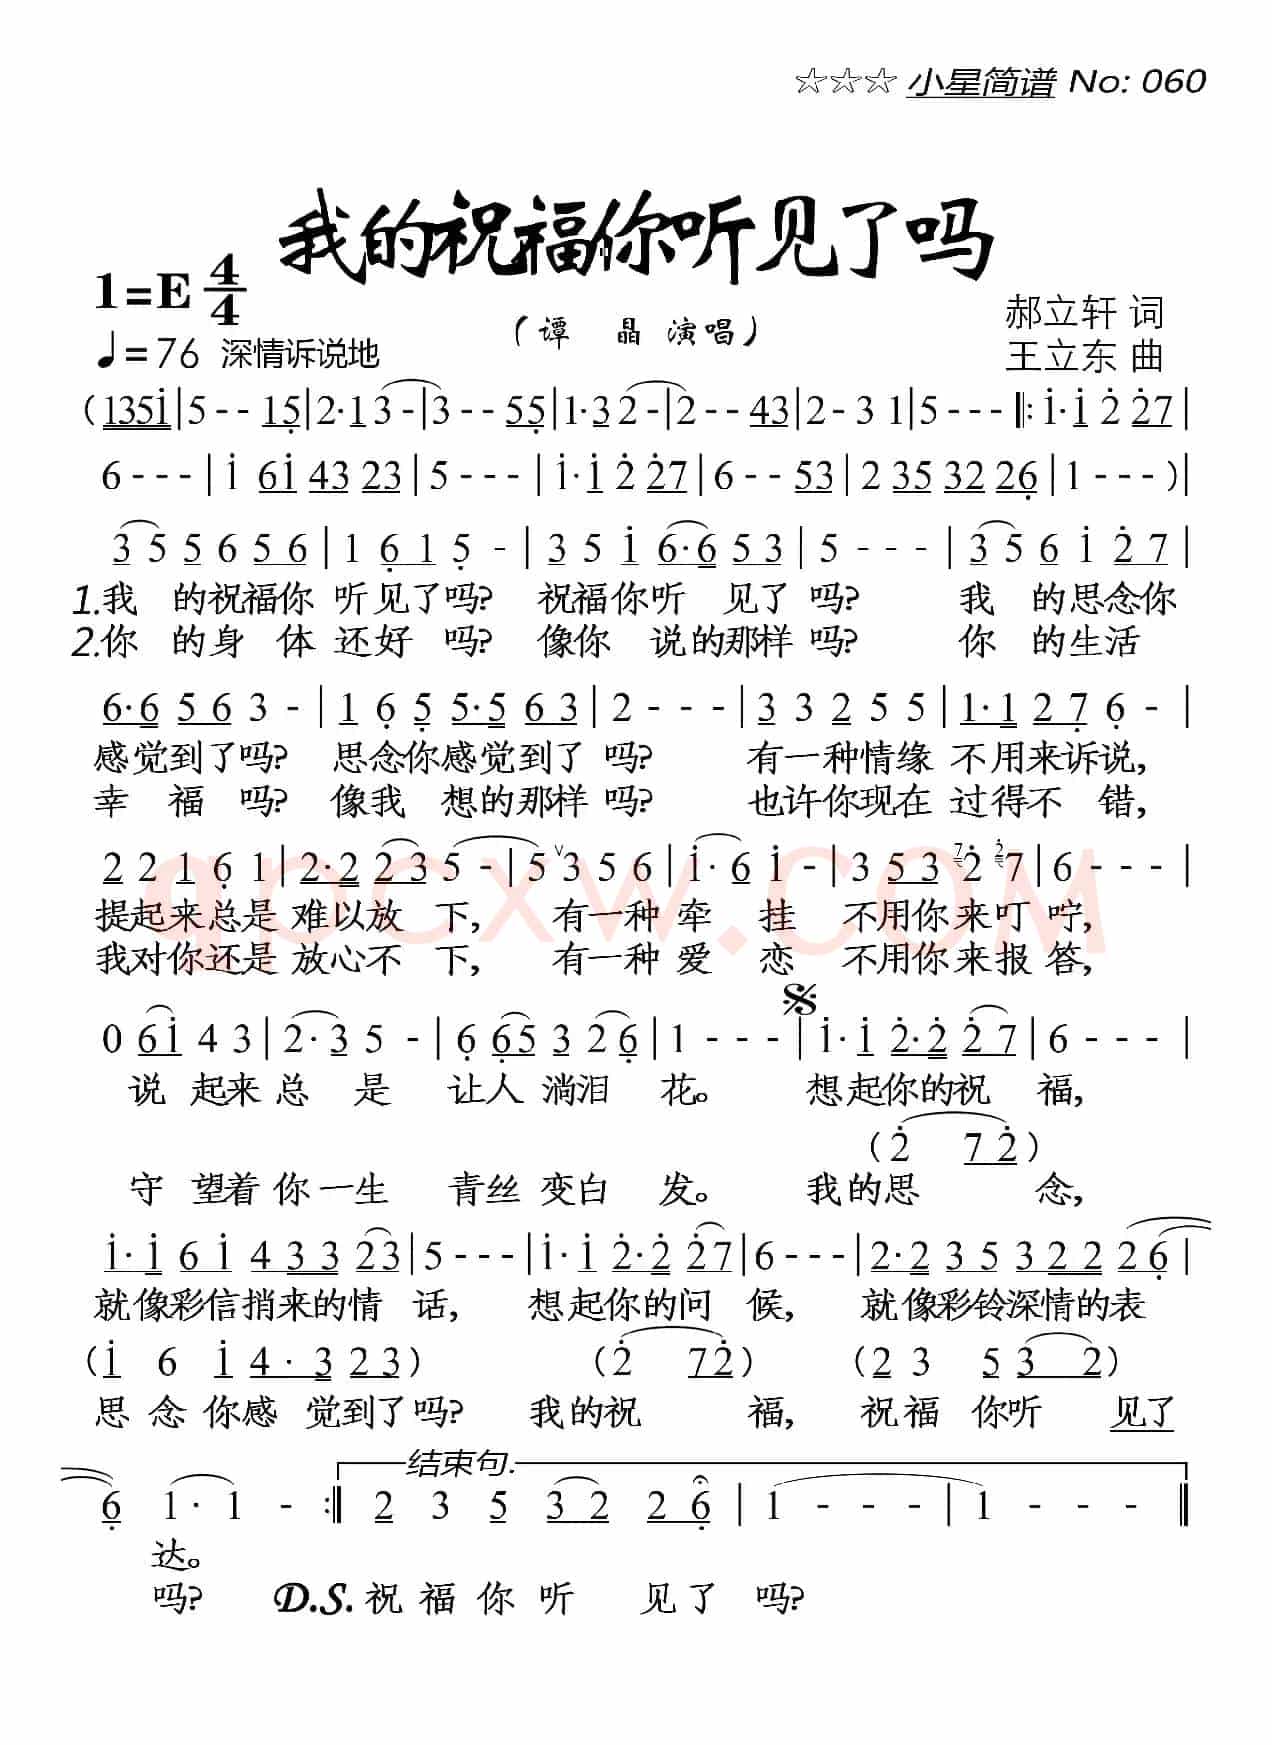 ☆☆☆ 小星简谱 No: 060
我的祝福你听见了吗
1=E 4/4
(谭 晶 演唱)
郝立轩 词
♩=76 深情诉说地
王立东 曲
(1351̇|5--15̣|2·13-|3--55̣|1·32-|2--43|2-31|5---|:1̇·1̇2̇2̇7|
6---|1̇61̇4323|5---|1̇·1̇2̇2̇7|6--53|2353226̣|1---)|
355656|16̣15̣-|351̇6·653|5---|3561̇2̇7|
1.我 的祝福你 听见了吗? 祝福你听 见了 吗? 我 的思念你
2.你 的身 体 还好 吗? 像你 说的那样 吗? 你 的生活
6·6563-|16̣5̣5·563|2---|33255|1·127̣6̣-|
感觉到了吗? 思念你感觉到了 吗? 有一种情缘 不用来诉说,
幸 福 吗? 像我 想的那样 吗? 也许你现在 过得不 错,
2216̣1|2·2235-|5∨356|1̇·61̇-|353 7 2̇ 2̇ 7|6---|
提起来总是 难以放 下, 有一种 牵 挂 不用你来叮 咛,
我对你还是 放心不 下, 有一种 爱 恋 不用你来报 答,
qpcxw.COM
061̇43|2·35-|6̣6̣5326̣|1---|𝄋1̇·1̇2̇·2̇2̇7|6---|
说 起来 总 是 让人 淌泪 花。 想起你的祝 福,
(2̇ 72̇)
守 望着 你 一生 青丝 变白 发。 我的思 念,
1̇·1̇61̇43323|5---|1̇·1̇2̇·2̇2̇7|6---|2·23532226̣|
就像彩信捎来的情 话, 想起你的问 候, 就像彩铃深情的表
(1̇ 6 1̇ 4·3 23) (2̇ 72̇) (23 53 2)
思 念 你感 觉到了吗? 我的祝 福, 祝福 你听 见了
结束句.
6̣ 1·1 - :‖ 2 3 5 3 2 2 6̣ | 1 - - - | 1 - - - ‖
达。
吗? D.S. 祝 福 你 听 见了 吗?